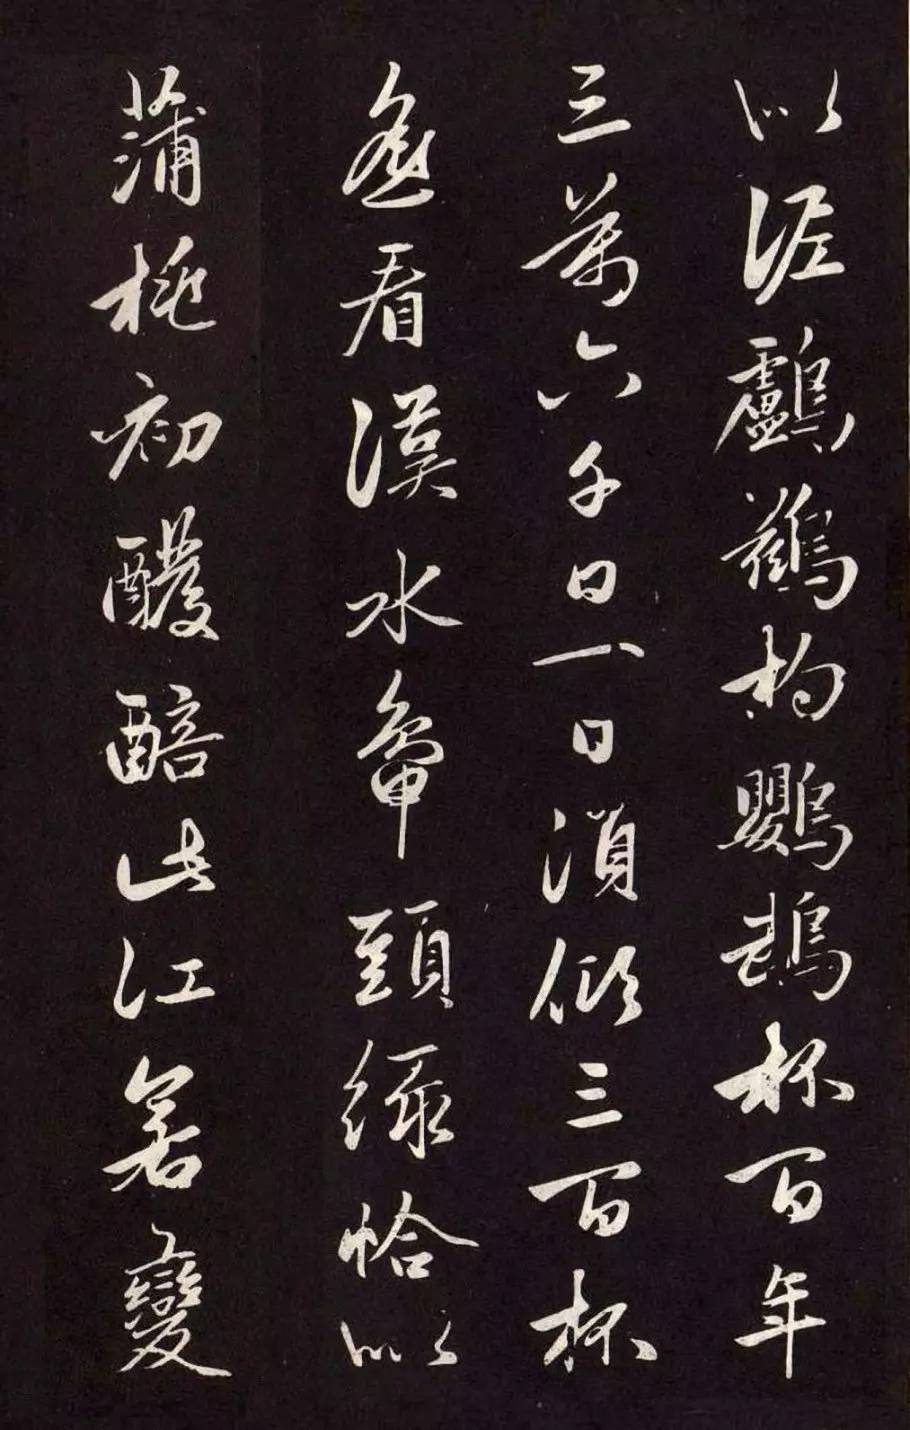 似泥鸕鷀杓鸚鵡杯百年
三萬六千日一日須傾三百杯
遙看漢水鴨頭綠恰似
蒲桃初醱醅此江若變